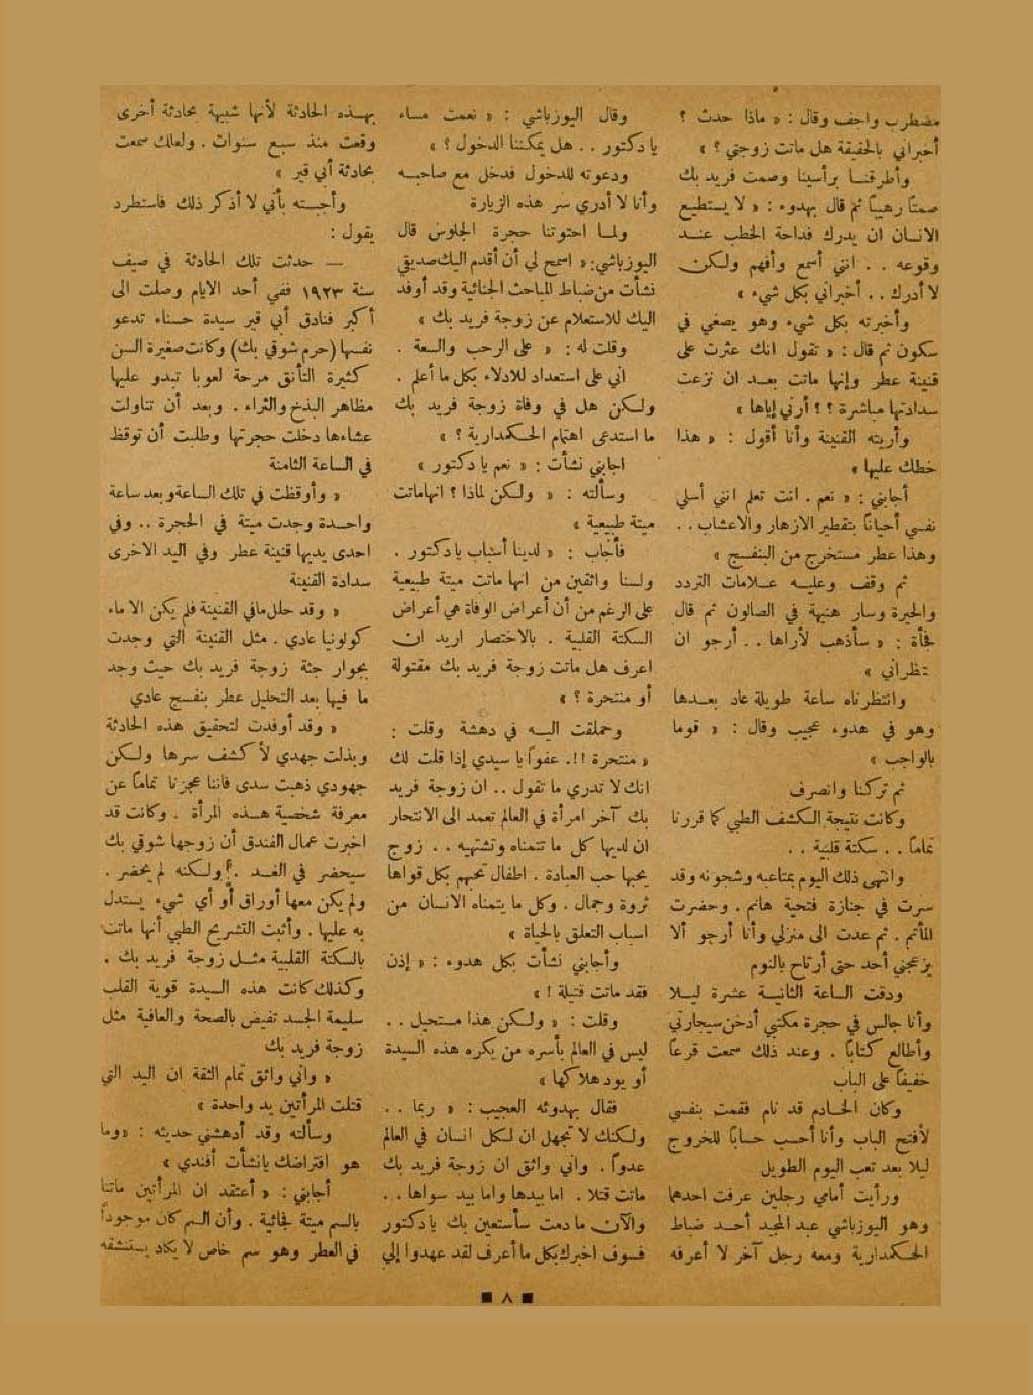 مضطرب واجف وقال : « ماذا حدث ؟
أخبراني بالحقيقة هل ماتت زوجتي ؟ »
وأطرقنا برأسينا وصمت فريد بك
صمتاً رهيباً ثم قال بهدوء : « لا يستطيع
الانسان ان يدرك فداحة الخطب عند
وقوعه . . انني أسمع وأفهم ولكن
لا أدرك . . أخبراني بكل شيء »
وأخبرته بكل شيء وهو يصغي في
سكون ثم قال : « تقول انك عثرت على
قنينة عطر وإنها ماتت بعد ان نزعت
سدادتها مباشرة ؟ ؟ أرني إياها »
وأريته القنينة وأنا أقول : « هذا
خطك عليها »
أجابني : « نعم . انت تعلم انني أسلي
نفسي أحياناً بتقطير الازهار والاعشاب . .
وهذا عطر مستخرج من البنفسج »
ثم وقف وعليه علامات التردد
والحيرة وسار هنيهة في الصالون ثم قال
فجأة : « سأذهب لأراها . . أرجو ان
تنتظراني »
وانتظرناه ساعة طويلة عاد بعدها
وهو في هدوء عجيب وقال : « قوما
بالواجب »
ثم تركنا وانصرف
وكانت نتيجة الكشف الطبي كما قررنا
تماماً . . سكتة قلبية . .
وانتهى ذلك اليوم بمتاعبه وشجونه وقد
سرت في جنازة فتحية هانم . وحضرت
المأتم . ثم عدت الى منزلي وأنا أرجو ألا
يزعجني أحد حتى أرتاح بالنوم
ودقت الساعة الثانية عشرة ليلا
وأنا جالس في حجرة مكتبي أدخن سيجارتي
وأطالع كتاباً . وعند ذلك سمعت قرعاً
خفيفاً على الباب
وكان الخادم قد نام فقمت بنفسي
لأفتح الباب وأنا أحسب حساباً للخروج
ليلا بعد تعب اليوم الطويل
ورأيت أمامي رجلين عرفت احدهما
وهو اليوزباشي عبد المجيد أحمد ضباط
الحكمدارية ومعه رجل آخر لا أعرفه
وقال اليوزباشي : « نعمت مساء
يا دكتور . . هل يمكننا الدخول ؟ »
ودعوته للدخول فدخل مع صاحبه
وأنا لا أدري سر هذه الزيارة
ولما احتوتنا حجرة الجلوس قال
اليوزباشي : « اسمح لي أن أقدم اليك صديقي
نشأت من ضباط المباحث الجنائية وقد أوفد
اليك للاستعلام عن زوجة فريد بك »
وقلت له : « على الرحب والسعة .
اني على استعداد للادلاء بكل ما أعلم .
ولكن هل في وفاة زوجة فريد بك
ما استدعى اهتمام الحكمدارية ؟ »
اجابني نشأت : « نعم يا دكتور »
وسألته : « ولكن لماذا ؟ انها ماتت
ميتة طبيعية »
فأجاب : « لدينا أسباب يا دكتور .
ولسنا واثقين من انها ماتت ميتة طبيعية
على الرغم من أن أعراض الوفاة هي أعراض
السكتة القلبية . بالاختصار اريد ان
اعرف هل ماتت زوجة فريد بك مقتولة
أو منتحرة ؟ »
وحملقت اليه في دهشة وقلت :
« منتحرة !! . عفواً يا سيدي إذا قلت لك
انك لا تدري ما تقول . . ان زوجة فريد
بك آخر امرأة في العالم تعمد الى الانتحار
ان لديها كل ما تتمناه وتشتهيه . . زوج
يحبها حب العبادة . اطفال تحبهم بكل قواها
ثروة وجمال . وكل ما يتمناه الانسان من
اسباب التعلق بالحياة »
وأجابني نشأت بكل هدوء : « إذن
فقد ماتت قتيلة ! »
وقلت : « ولكن هذا مستحيل . .
ليس في العالم بأسره من يكره هذه السيدة
أو يود هلاكها »
فقال بهدوئه العجيب : « ربما . .
ولكنك لا تجهل ان لكل انسان في العالم
عدواً . واني واثق ان زوجة فريد بك
ماتت قتلا . اما بيدها واما بيد سواها . .
والآن ما دمت سأستعين بك يا دكتور
فسوف اخبرك بكل ما أعرف لقد عهدوا إلي
بهذه الحادثة لأنها شبيهة بحادثة أخرى
وقعت منذ سبع سنوات . ولعلك سمعت
بحادثة أبي قير »
وأجبته بأني لا أذكر ذلك فاستطرد
يقول :
— حدثت تلك الحادثة في صيف
سنة ١٩٢٣ ففي أحد الايام وصلت الى
أكبر فنادق أبي قير سيدة حسناء تدعو
نفسها (حرم شوقي بك) وكانت صغيرة السن
كثيرة التأنق مرحة لعوبا تبدو عليها
مظاهر البذخ والثراء . وبعد أن تناولت
عشاءها دخلت حجرتها وطلبت أن توقظ
في الساعة الثامنة
« وأوقظت في تلك الساعة وبعد ساعة
واحدة وجدت ميتة في الحجرة . . وفي
احدى يديها قنينة عطر وفي اليد الاخرى
سدادة القنينة
« وقد حلل مافي القنينة فلم يكن الا ماء
كولونيا عادي . مثل القنينة التي وجدت
بجوار جثة زوجة فريد بك حيث وجد
ما فيها بعد التحليل عطر بنفسج عادي
« وقد أوفدت لتحقيق هذه الحادثة
وبذلت جهدي لأكشف سرها ولكن
جهودي ذهبت سدى فاننا عجزنا تماماً عن
معرفة شخصية هذه المرأة . وكانت قد
اخبرت عمال الفندق أن زوجها شوقي بك
سيحضر في الغد . ولكنه لم يحضر .
ولم يكن معها أوراق أو أي شيء يستدل
به عليها . وأثبت التشريح الطبي أنها ماتت
بالسكتة القلبية مثل زوجة فريد بك .
وكذلك كانت هذه السيدة قوية القلب
سليمة الجسد تفيض بالصحة والعافية مثل
زوجة فريد بك
« واني واثق تمام الثقة ان اليد التي
قتلت المرأتين يد واحدة »
وسألته وقد أدهشني حديثه : « وما
هو افتراضك يا نشأت أفندي »
أجابني : « أعتقد ان المرأتين ماتتا
بالسم ميتة فجائية . وأن السم كان موجوداً
في العطر وهو سم خاص لا يكاد يستنشقه
■ ٨ ■